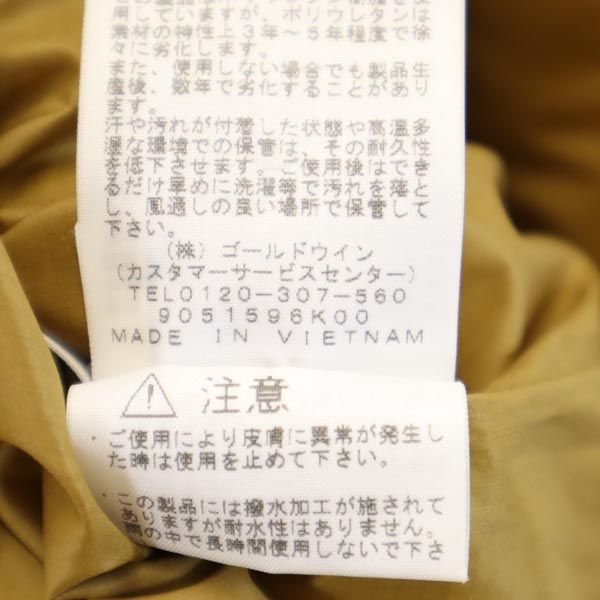 素材の特性上3年～5年程度で徐
々に劣化します。
また、使用しない場合でも製品生
産後、数年で劣化することがあり
ます。
汗や汚れが付着した状態や高温多
湿な環境での保管は、その耐久性
を低下させます。ご使用後はでき
るだけ早めに洗濯等で汚れを落と
し、風通しの良い場所で保管して
下さい。
(株)ゴールドウイン
(カスタマーサービスセンター)
TEL0120-307-560
9051596K00
MADE IN VIETNAM
注意
・ご使用により皮膚に異常が発生し
た時は使用を止めて下さい。
・この製品には撥水加工が施されて
ありますが耐水性はありません。
雨の中で長時間使用しないで下さ